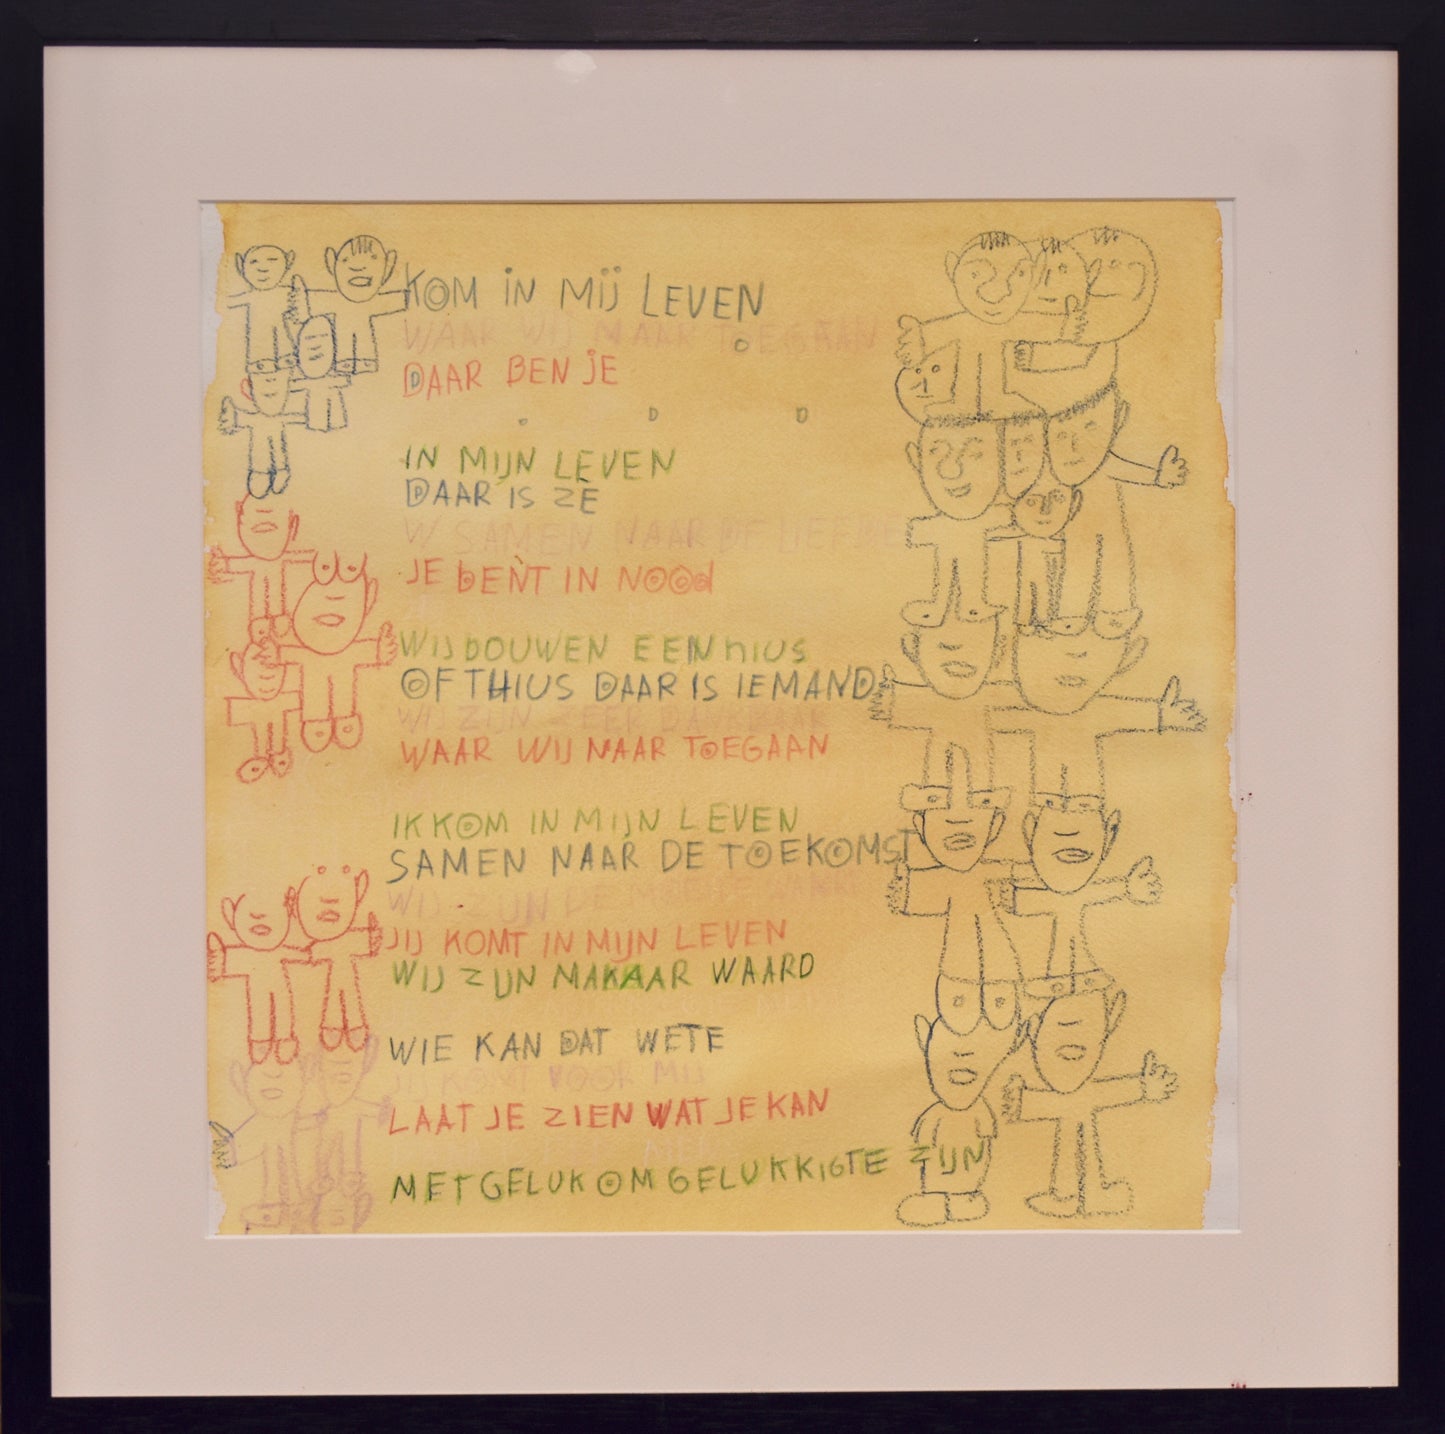 KOM IN MIJ LEVEN
WAAR WIJ NAAR TOEGAAN
DAAR BEN JE
IN MIJN LEVEN
DAAR IS ZE
W SAMEN NAAR DE LIEFDE
JE BENT IN NOOd
WIJ BOUWEN EEN hIUS
OF THIUS DAAR IS IEMAND
WIJ ZIJN ZEER
WAAR WIJ NAAR TOEGAAN
IK KOM IN MIJN LEVEN
SAMEN NAAR DE TOEKOMST
WIJ ZIJN DE
JIJ KOMT IN MIJN LEVEN
WIJ ZIJN MAKAAR WAARD
WIE KAN DAT WETE
VOOR MIJ
LAAT JE ZIEN WAT JE KAN
MET GELUK OM GELUKKIGTE ZIJN